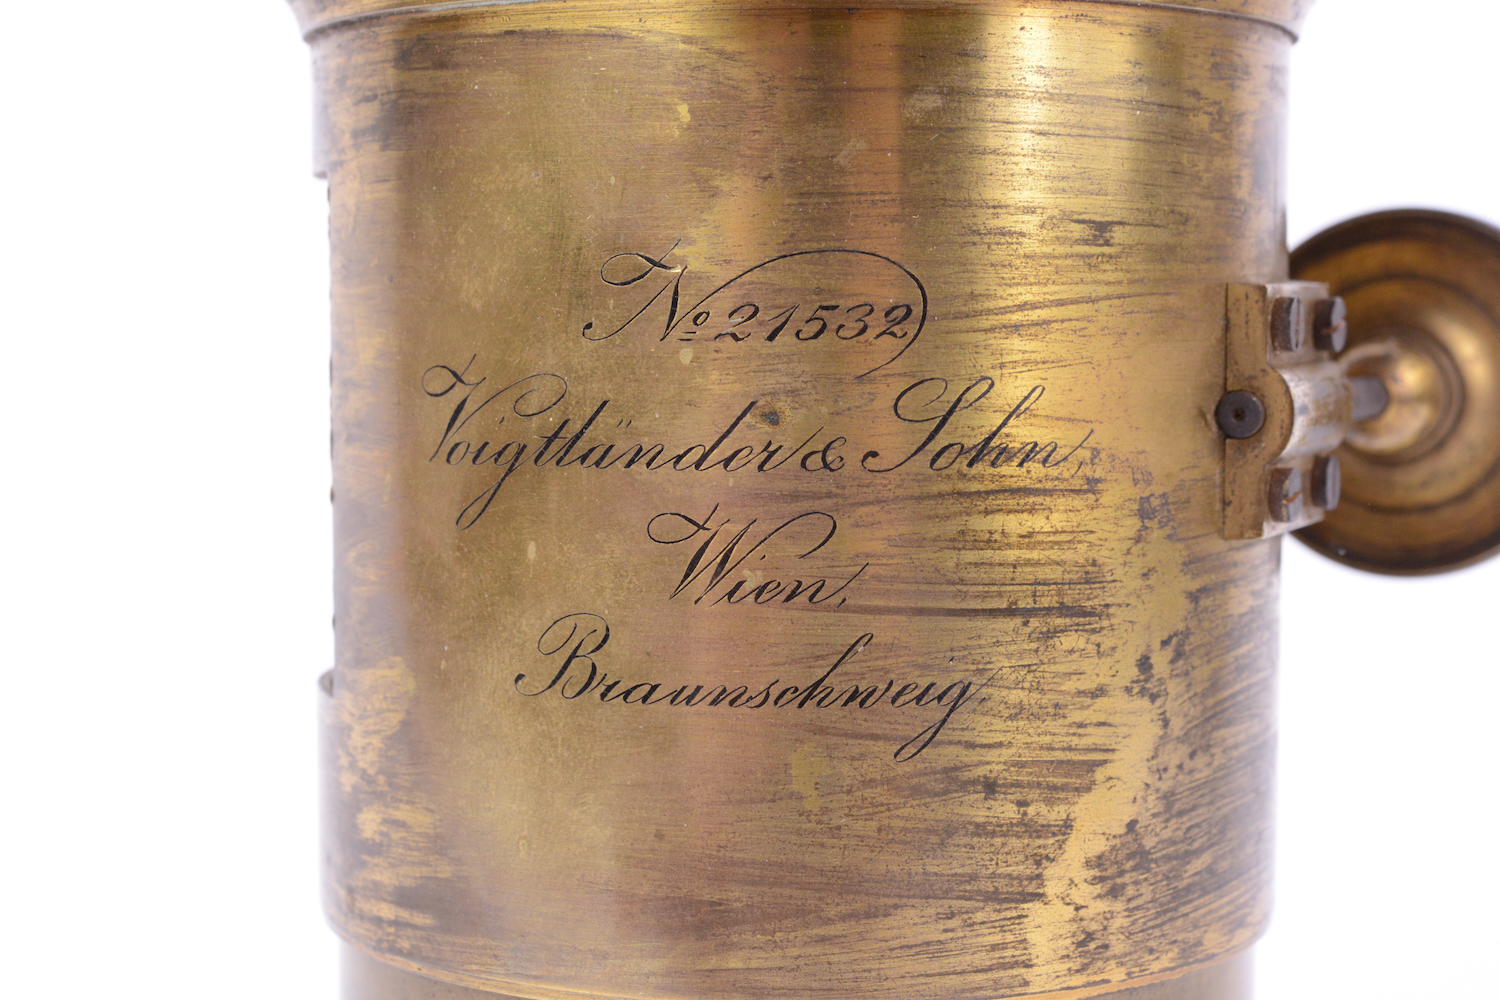 No 21532
Voigtländer & Sohn,
Wien,
Braunschweig.